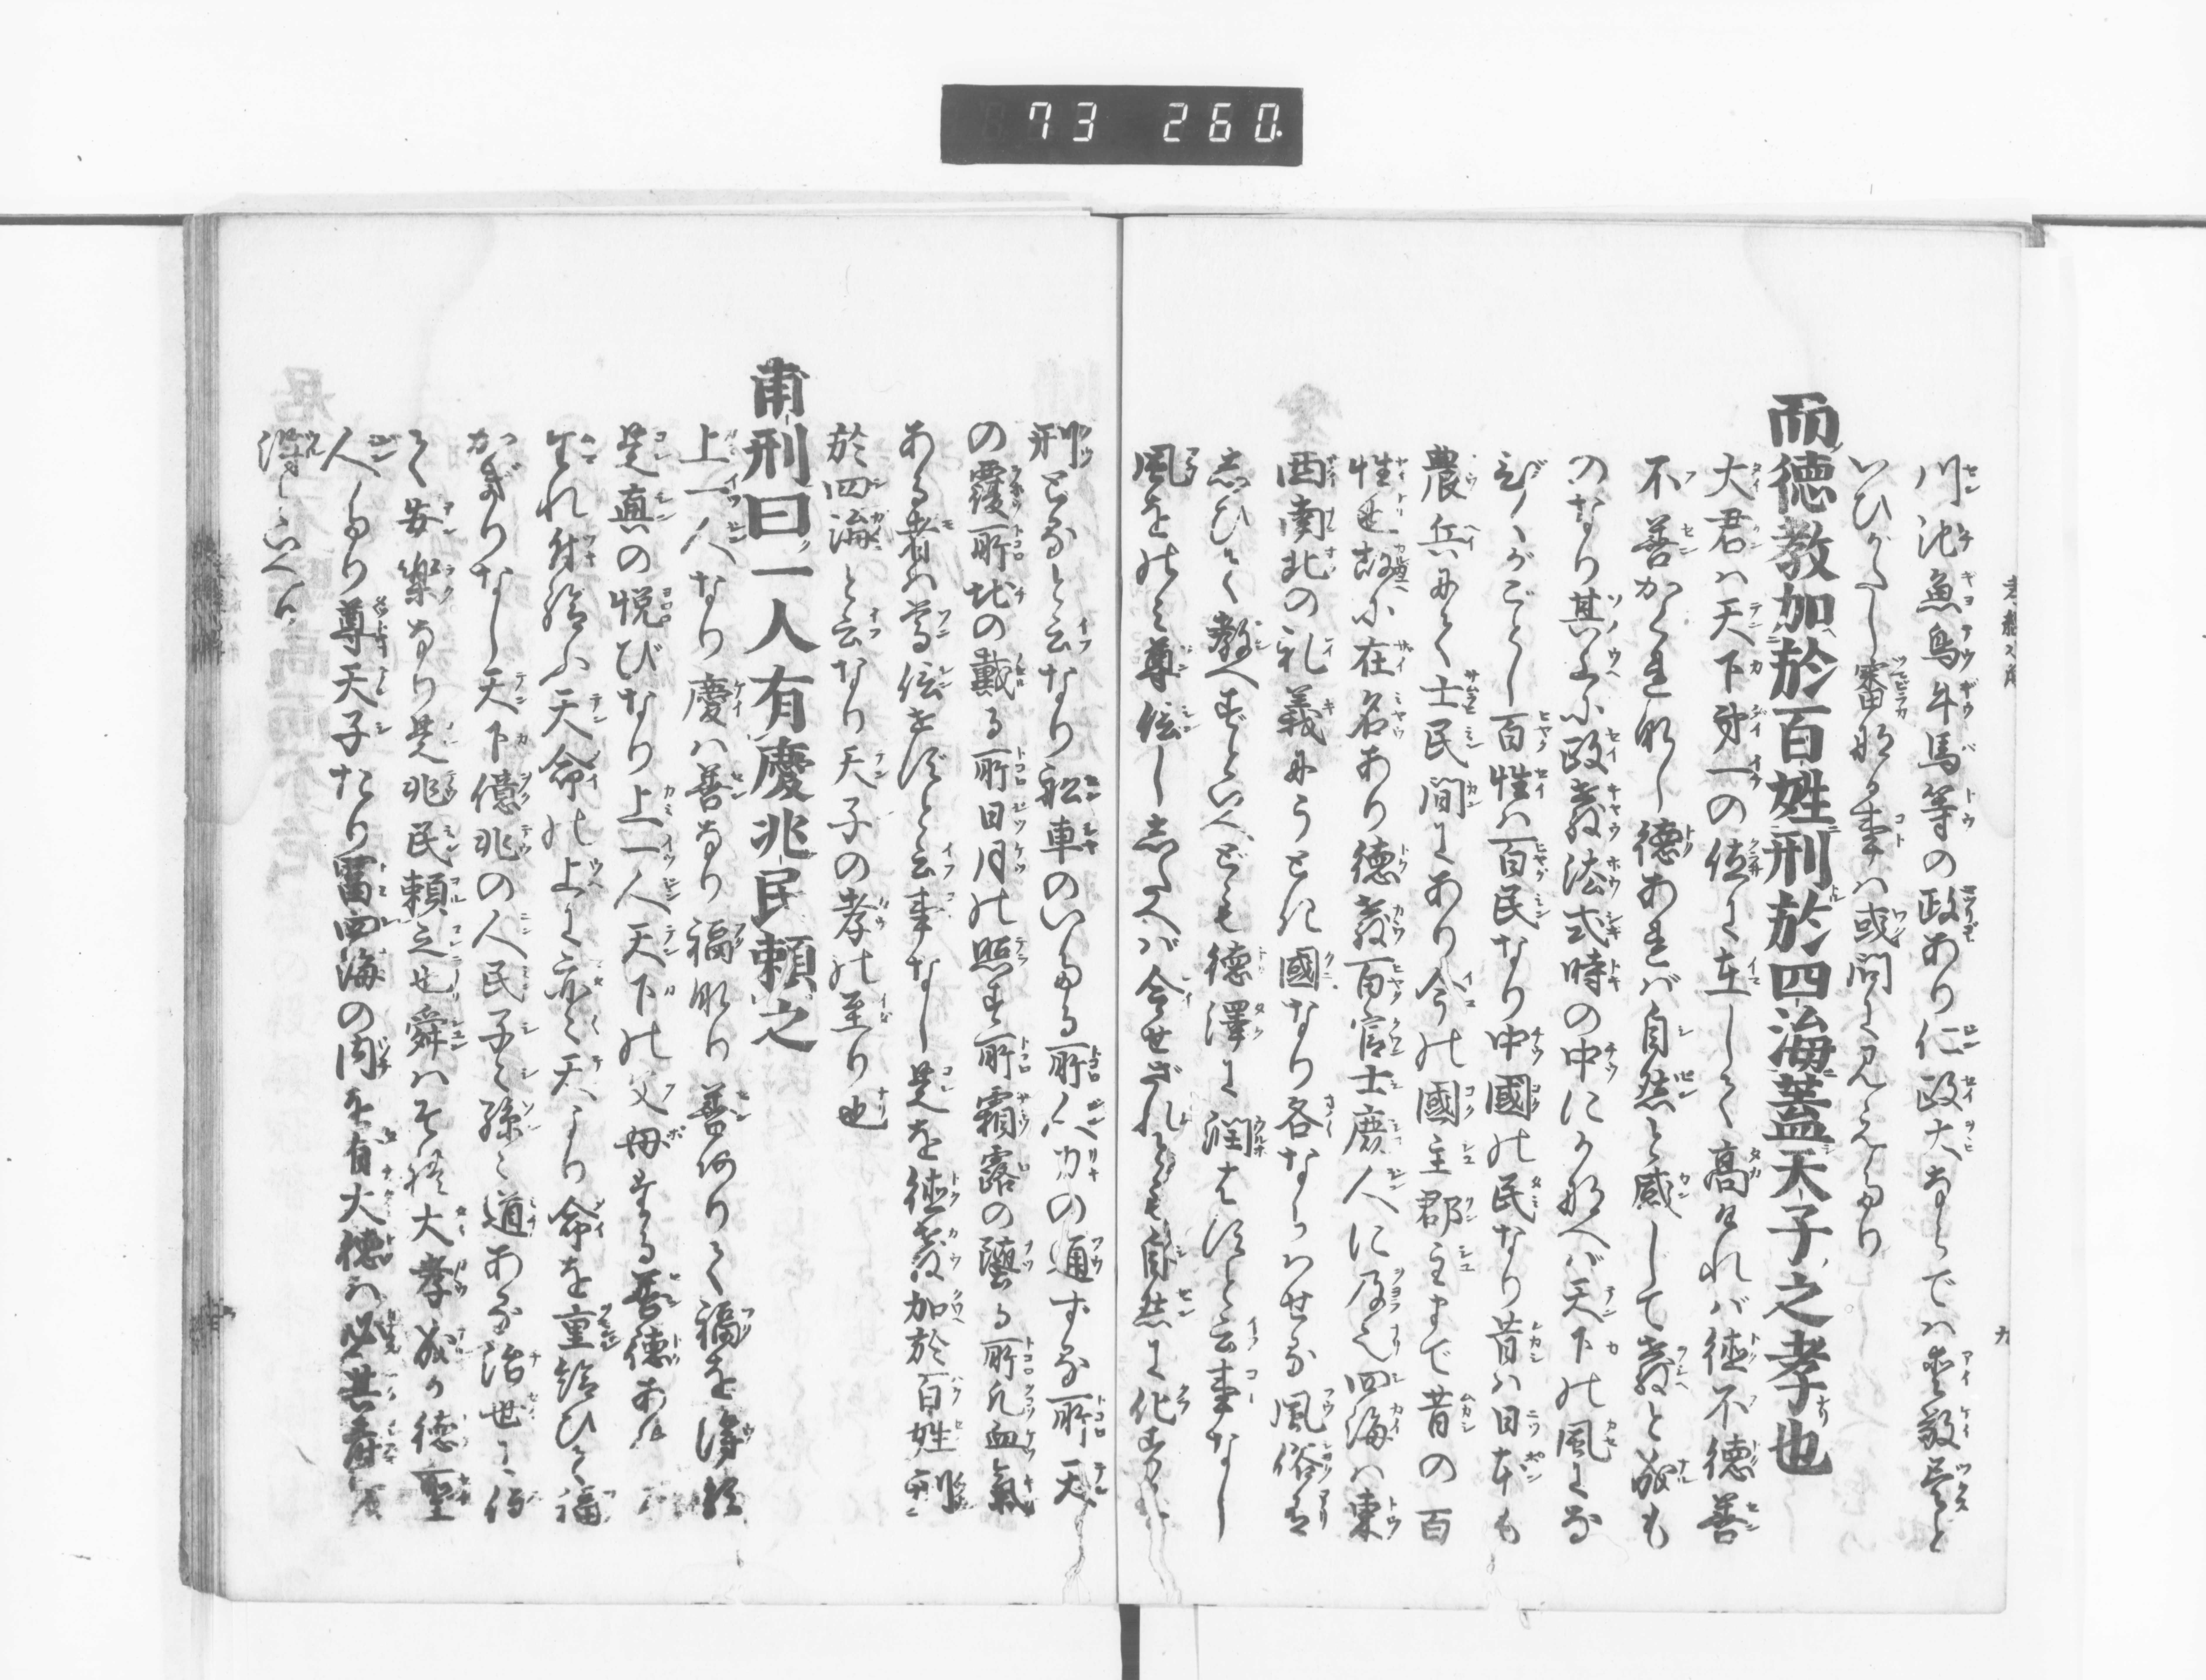 73 260.
川池魚鳥牛馬等の政あり仁政大ならでは愛敬尽と
いひがたし審なる事は或問に見えたり
而徳教加於百姓刑於四海蓋天子之孝也
大君は天下第一の位に在して高ければ徳不徳善
不善かくれなし徳あれば自然と感して教と成も
のなり其上に政教法式時の中にかなへば天下の風になる
がごとし百姓は百民なり中國の民なり昔は日本も
農兵にて士民間にあり今の國主郡主まで昔の百
姓也故に在名あり徳教百官士庶人に及也四海は東
西南北の礼義にうとき國なり各ならはせる風俗有
しひて教へずといへども徳澤に潤はずと云事なし
風をのぞみ尊信ししたへば令せざれども自然に化す
刑となると云なり舩車のいたる所人力の通ずる所天
の覆所地の戴る所日月の照す所霜露の墜る所凡血氣
ある者は尊信せずと云事なし是を徳教加於百姓刑
於四海と云なり天子の孝の至り也
甫刑曰一人有慶兆民頼之
上一人なり慶は善なり福なり善ありて福を得
是真の悦びなり上一人天下の父母する善徳あれ
これ付給ふ天命の上に亦天より命を重給ひて福
かぎりなし天下億兆の人民子々孫々道ある治世に
て安樂なり是兆民頼之也舜は其大孝成の徳聖
人たり尊天子たり冨四海の内を有大徳は必其壽
得といへり